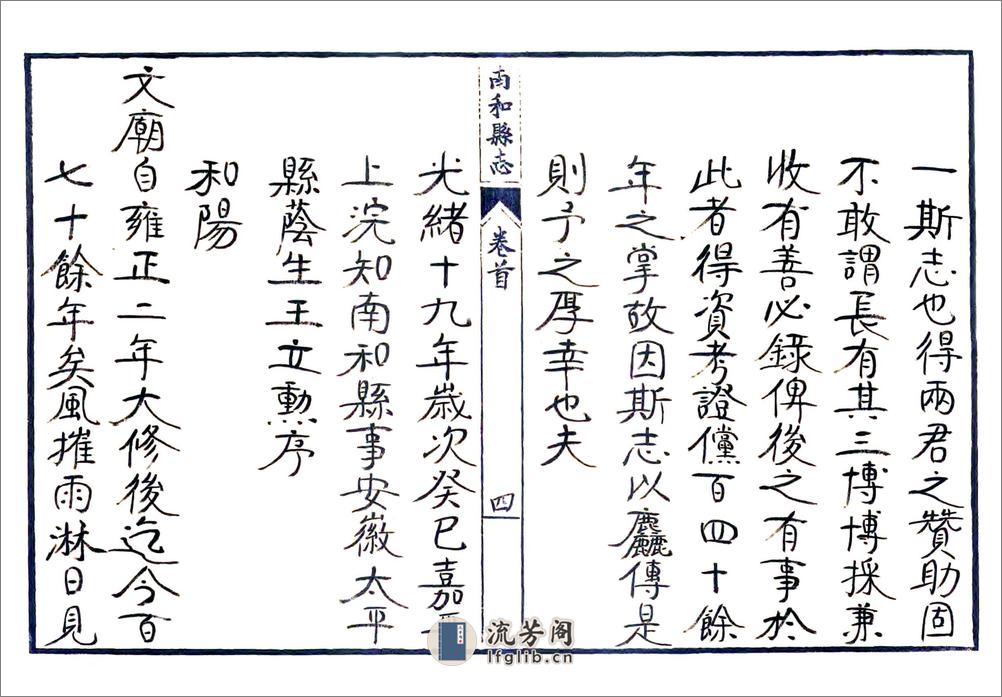 一斯志也得兩君之贊助固
不敢謂長有其三博博採兼
收有善必錄俾後之有事於
此者得資考證儻百四十餘
年之掌故因斯志以麤傳是
則予之厚幸也夫
南和縣志
卷首
四
光緒十九年歲次癸巳嘉平
上浣知南和縣事安徽太平
縣蔭生王立勳序
和陽
文廟自雍正二年大修後迄今百
七十餘年矣風摧雨淋日見
流芳阁
lfglib.cn